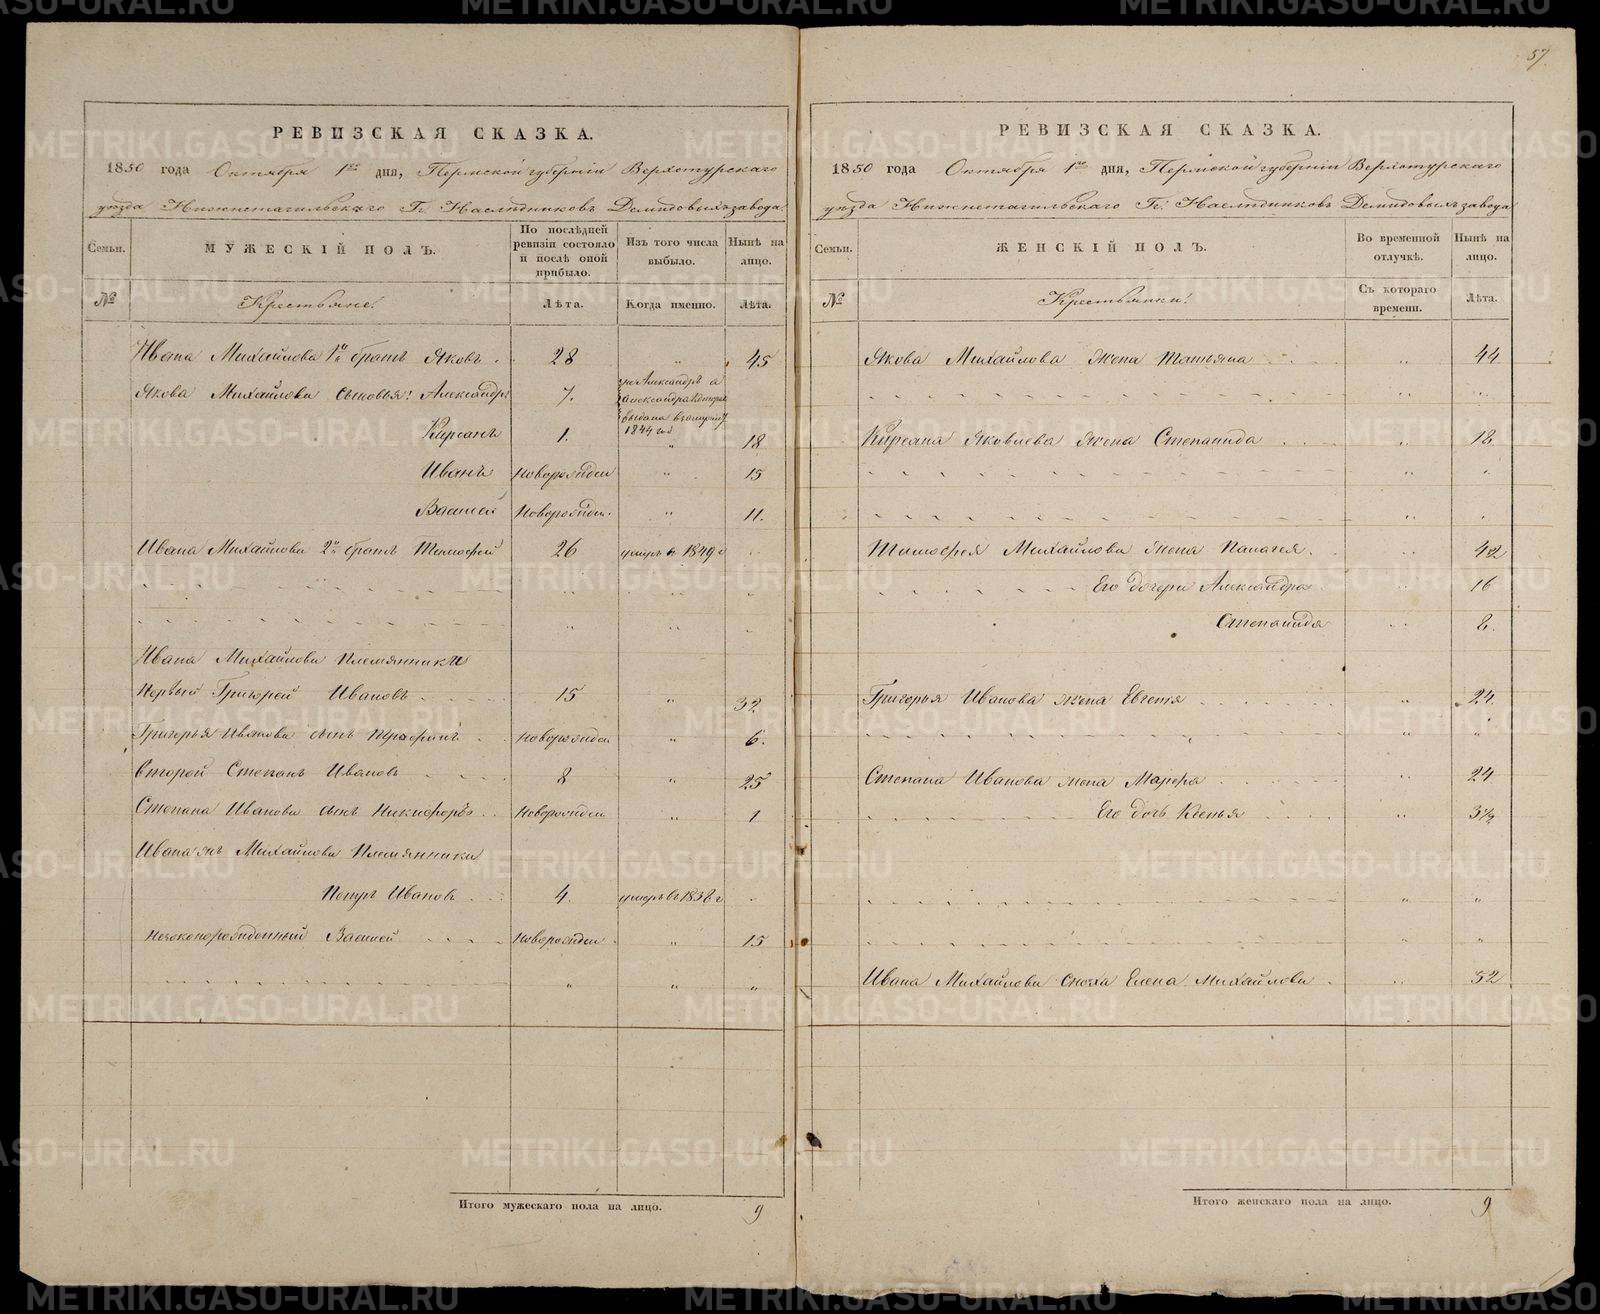 57.
РЕВИЗСКАЯ СКАЗКА.
1850 года Октября 1го дня, Пермской губерніи Верхотурскаго
уѣзда Нижнетагильскаго Гг. Наслѣдниковъ Демидовыхъ завода.
Семьи.
МУЖЕСКІЙ ПОЛЪ.
По послѣдней ревизіи состояло и послѣ оной прибыло.
Изъ того числа выбыло.
Нынѣ на лицо.
№
Крестьяне:
Лѣта.
Когда именно.
Лѣта.
Ивана Михайлова 1й братъ Яковъ 28 " 45
Якова Михайлова сыновья: Александръ 7. не Александръ а Александра которая выдана въ 1844 г.
Кирсанъ 1. " 18
Иванъ новорожден " 15
Василей новорожден. " 11.
Ивана Михайлова 2й братъ Тимофей 26 умеръ въ 1849 г
Ивана Михайлова Племянники
Первый Григорей Ивановъ 15 " 32
Григорья Иванова сынъ новорожден " 6.
Второй Степанъ Ивановъ 8 " 25
Степана Иванова сынъ Никифоръ новорожден " 1
Ивана Михайлова Племянники
Ивановъ 4. умеръ въ г
Незаконорожденный Василей новорожден " 15
Итого мужескаго пола на лицо. 9
РЕВИЗСКАЯ СКАЗКА.
1850 года Октября 1го дня, Пермской губерніи Верхотурскаго
уѣзда Нижнетагильскаго Гг. Наслѣдниковъ Демидовыхъ завода
Семьи.
ЖЕНСКІЙ ПОЛЪ.
Во временной отлучкѣ.
Нынѣ на лицо.
№
Крестьянки:
Съ котораго времени.
Лѣта.
Якова Михайлова жена Татьяна " 44
Кирсана Яковлева жена Степанида " 18
Тимофея Михайлова жена Палагея. " 42
Его дочери Александра " 16
Степанида " 2.
Григорья Иванова жена Евгенія " 24
Степана Иванова жена Марфа " 24
Его дочь Ксенья 3½
Ивана Михайлова сноха Елена Михайлова " 52
Итого женскаго пола на лицо. 9
METRIKI.GASO-URAL.RU